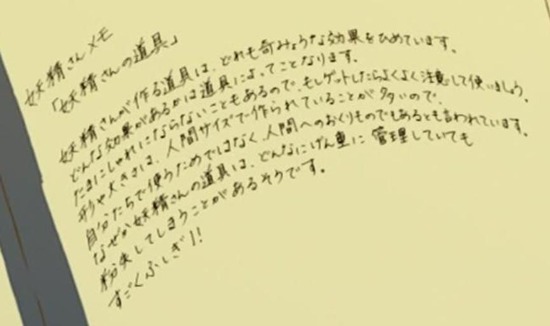 妖精さんメモ
「妖精さんの道具」
妖精さんが作る道具は、どれも奇みょうな効果をひめています。
どんな効果があるかは道具によってことなります。
たまにしゃれにならないこともあるので、もしゲットしたらよくよく注意して使いましょう。
形や大きさは、人間サイズで作られていることが多いので、
自分たちで使うためではなく、人間へのおくりものでもあるとも言われています。
なぜか妖精さんの道具は、どんなにげん重に管理していても
紛失してしまうことがあるそうです。
すごくふしぎ!!